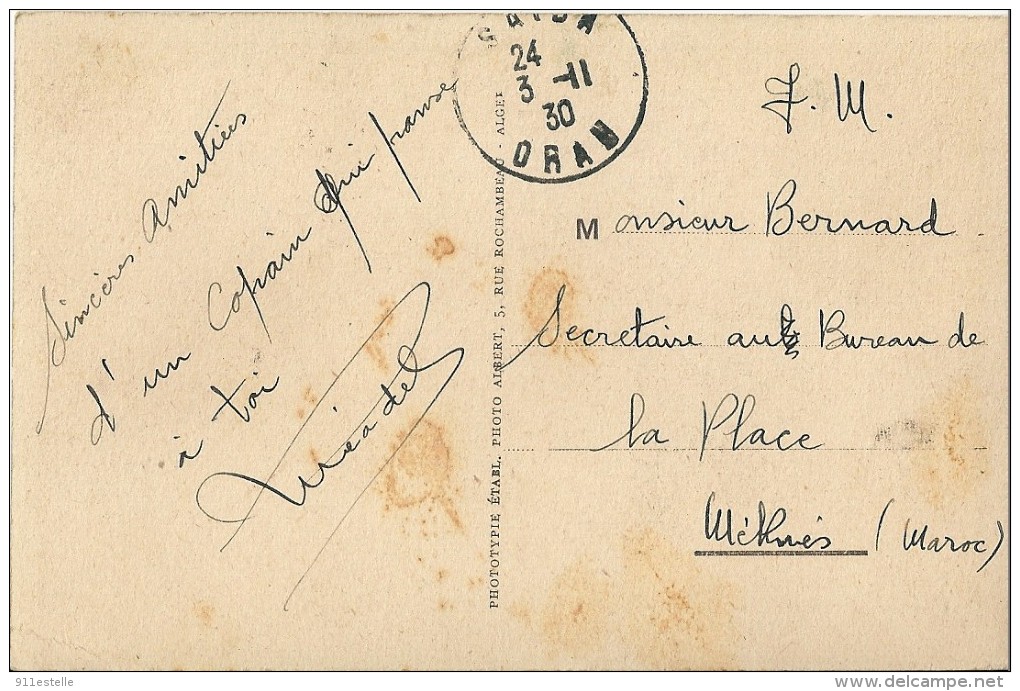 Sincères Amitiées
d'un Copain qui panse
à toi
SAIDA
24
3 -11
30
ORAN
F. M.
Monsieur Bernard
Secretaire au Bureau de
la Place
Méknès (Maroc)
PHOTOTYPIE ÉTABL. PHOTO ALBERT, 5, RUE ROCHAMBEAU - ALGER
911estelle
delcampe.net